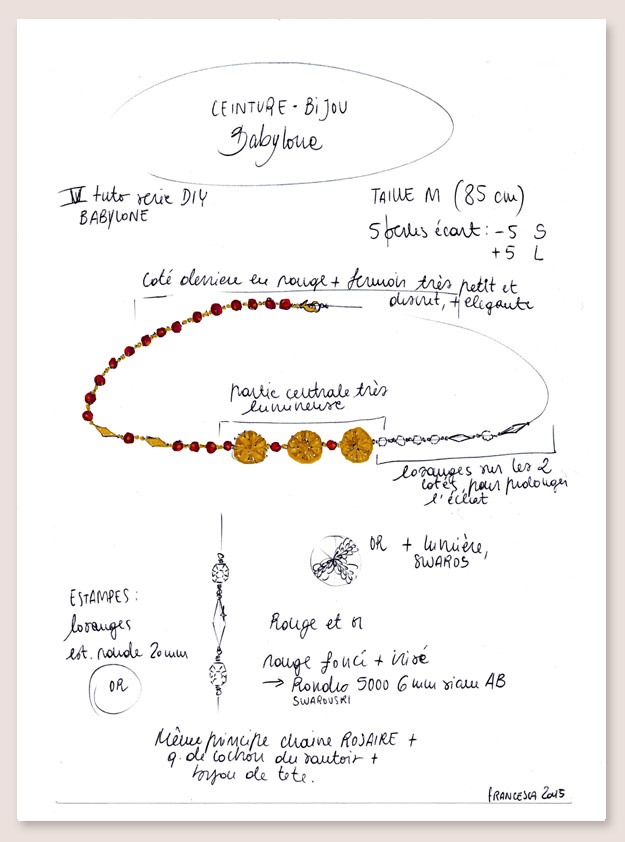 CEINTURE - BIJOU
Babylone
IV tuto serie DIY
BABYLONE
TAILLE M (85 cm)
5 perles écart : -5 S
+5 L
Coté derriere en rouge + fermoir très petit et
discret, + élégante
partie centrale très
lumineuse
losanges sur les 2
cotés, pour prolonger
l'éclat
OR + lumière,
SWAROS
ESTAMPES :
losanges
est. ronde 20mm
OR
Rouge et or
rouge foncé + irisé
→ Rondes 5000 6mm siam AB
SWAROVSKI
Même principe chaine ROSAIRE +
q. de cochon du sautoir +
bijou de tete.
FRANCESCA 2015